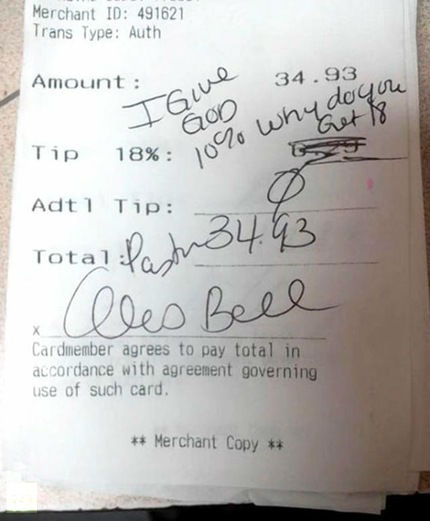 Merchant ID: 491621
Trans Type: Auth
Amount: 34.93
I Give
God
10% Why do you
Get 18
Tip 18%:
Adtl Tip: 0
Total: Pastor 34.93
x Alois Bell
Cardmember agrees to pay total in
accordance with agreement governing
use of such card.
** Merchant Copy **